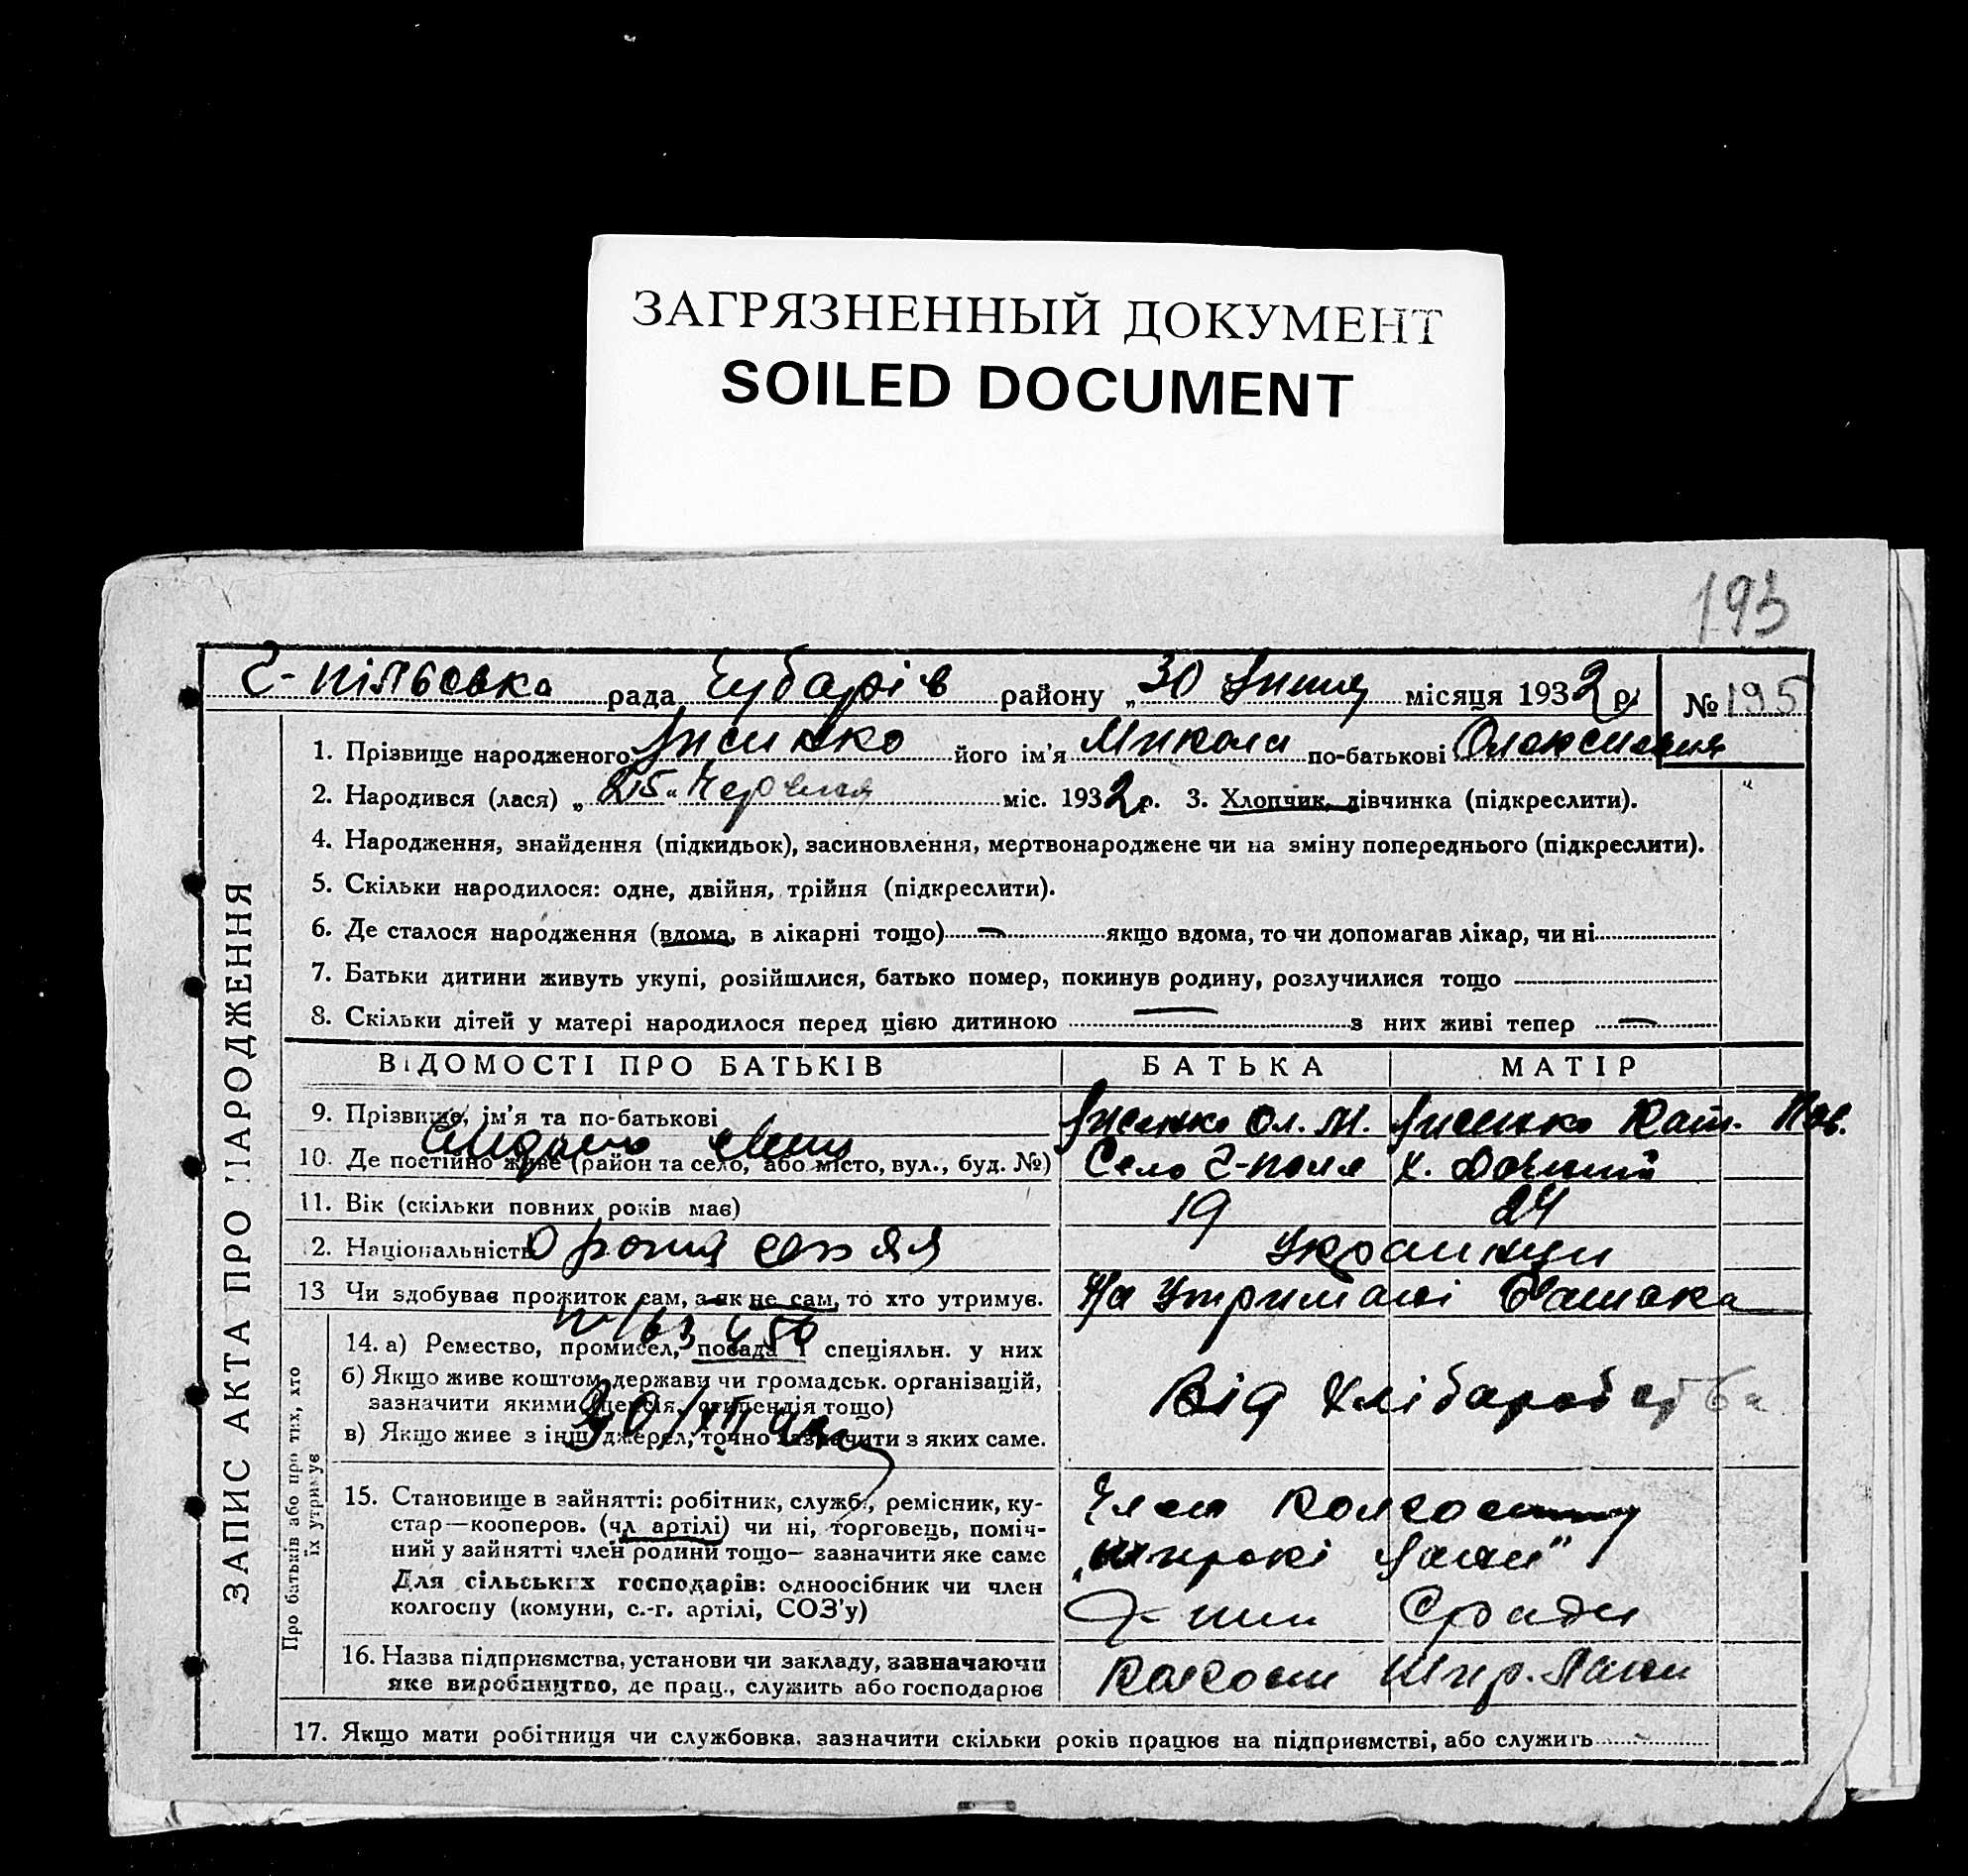 ЗАГРЯЗНЕННЫЙ ДОКУМЕНТ
SOILED DOCUMENT
193
Г-пільська рада Чубарів району „30 Липня місяця 1932 р. № 195
1. Прізвище народженого Лисенко його ім'я Микола по-батькові Олексієвич
2. Народився (лася) „25" Червня міс. 1932 р. 3. Хлопчик, дівчинка (підкреслити).
4. Народження, знайдення (підкидьок), засиновлення, мертвонароджене чи на зміну попереднього (підкреслити).
5. Скільки народилося: одне, двійня, трійня (підкреслити).
6. Де сталося народження (вдома, в лікарні тощо) — якщо вдома, то чи допомагав лікар, чи ні
7. Батьки дитини живуть укупі, розійшлися, батько помер, покинув родину, розлучилися тощо
8. Скільки дітей у матері народилося перед цією дитиною — з них живі тепер —
ЗАПИС АКТА ПРО НАРОДЖЕННЯ
ВІДОМОСТІ ПРО БАТЬКІВ БАТЬКА МАТІР
9. Прізвище, ім'я та по-батькові Лисенко Ол. М. Лисенко Кат. Пав.
10. Де постійно живе (район та село, або місто, вул., буд. №) Село Г-поля х.
11. Вік (скільки повних років має) 19 24
12. Національність Українци
13 Чи здобуває прожиток сам, а як не сам, то хто утримує. На утримані батька
№ 163450
30/XII
Про батьків або про тих, хто їх утримує
14. а) Ремество, промисел, посада і спеціяльн. у них
б) Якщо живе коштом держави чи громадськ. організацій,
зазначити якими (пенсія, стипендія тощо)
в) Якщо живе з інш. джерел, точно зазначити з яких саме.
Від хліборобства
15. Становище в зайнятті: робітник, службо., ремісник, ку-
стар—кооперов. (чл артілі) чи ні, торговець, поміч-
ний у зайнятті член родини тощо— зазначити яке саме
Для сільських господарів: одноосібник чи член
колгоспу (комуни, с.-г. артілі, СОЗ'у)
Член колгоспу
„Широкі Лани"
16. Назва підприємства, установи чи закладу, зазначаючи
яке виробництво, де прац., служить або господарює
Колгосп Шир. Лани
17. Якщо мати робітниця чи службовка, зазначити скільки років працює на підприємстві, або служить